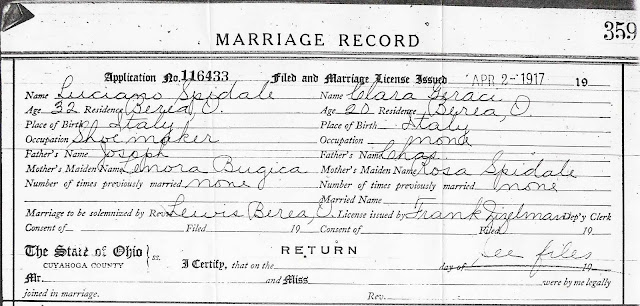 359
MARRIAGE RECORD
Application No. 116433 Filed and Marriage License Issued APR 2- 1917 19
Name Luciano Spidale Name Clara Geraci
Age 32 Residence Berea, O. Age 20 Residence Berea, O
Place of Birth Italy Place of Birth Italy
Occupation Shoemaker Occupation none
Father's Name Joseph Father's Name Chas
Mother's Maiden Name Lenora Bugica Mother's Maiden Name Rosa Spidale
Number of times previously married none Number of times previously married none
Married Name
Marriage to be solemnized by Rev. Lewis Berea O. License issued by Frank Zizelman Dep'y Clerk
Consent of Filed 19 Consent of Filed 19
The State of Ohio } ss. RETURN
CUYAHOGA COUNTY I Certify, that on the day of see files 19
Mr. and Miss were by me legally
joined in marriage. Rev.